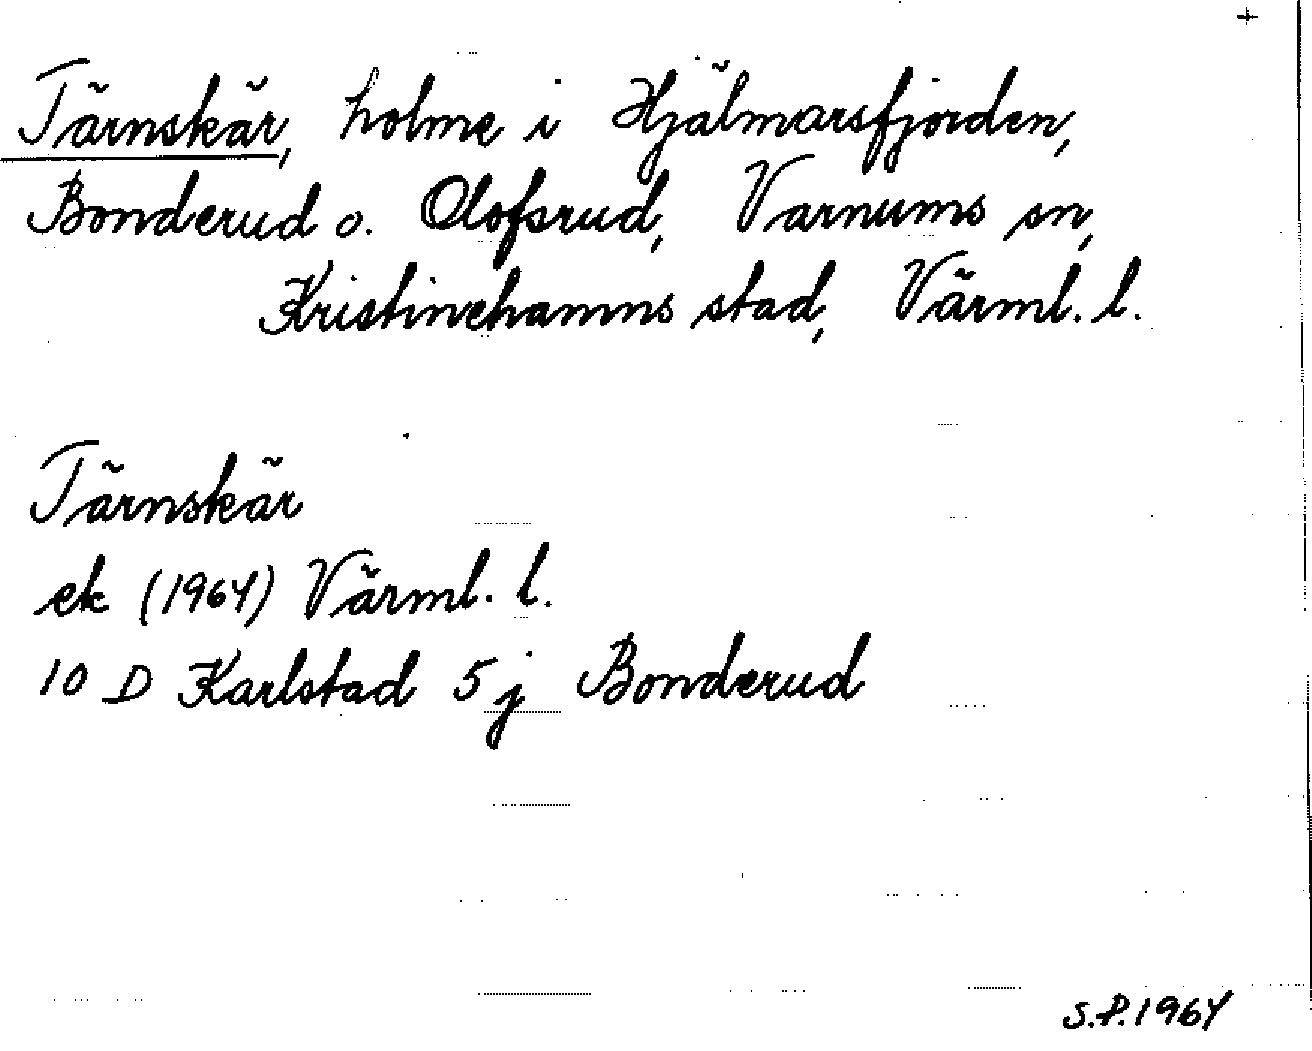 +
Tärnskär, holme i Hjälmarsfjorden,
Bonderud o. Olofsrud, Varnums sn,
Kristinehamns stad, Värml. l.
Tärnskär
ek (1964) Värml. l.
10 D Karlstad 5 j Bonderud
S.P. 1964